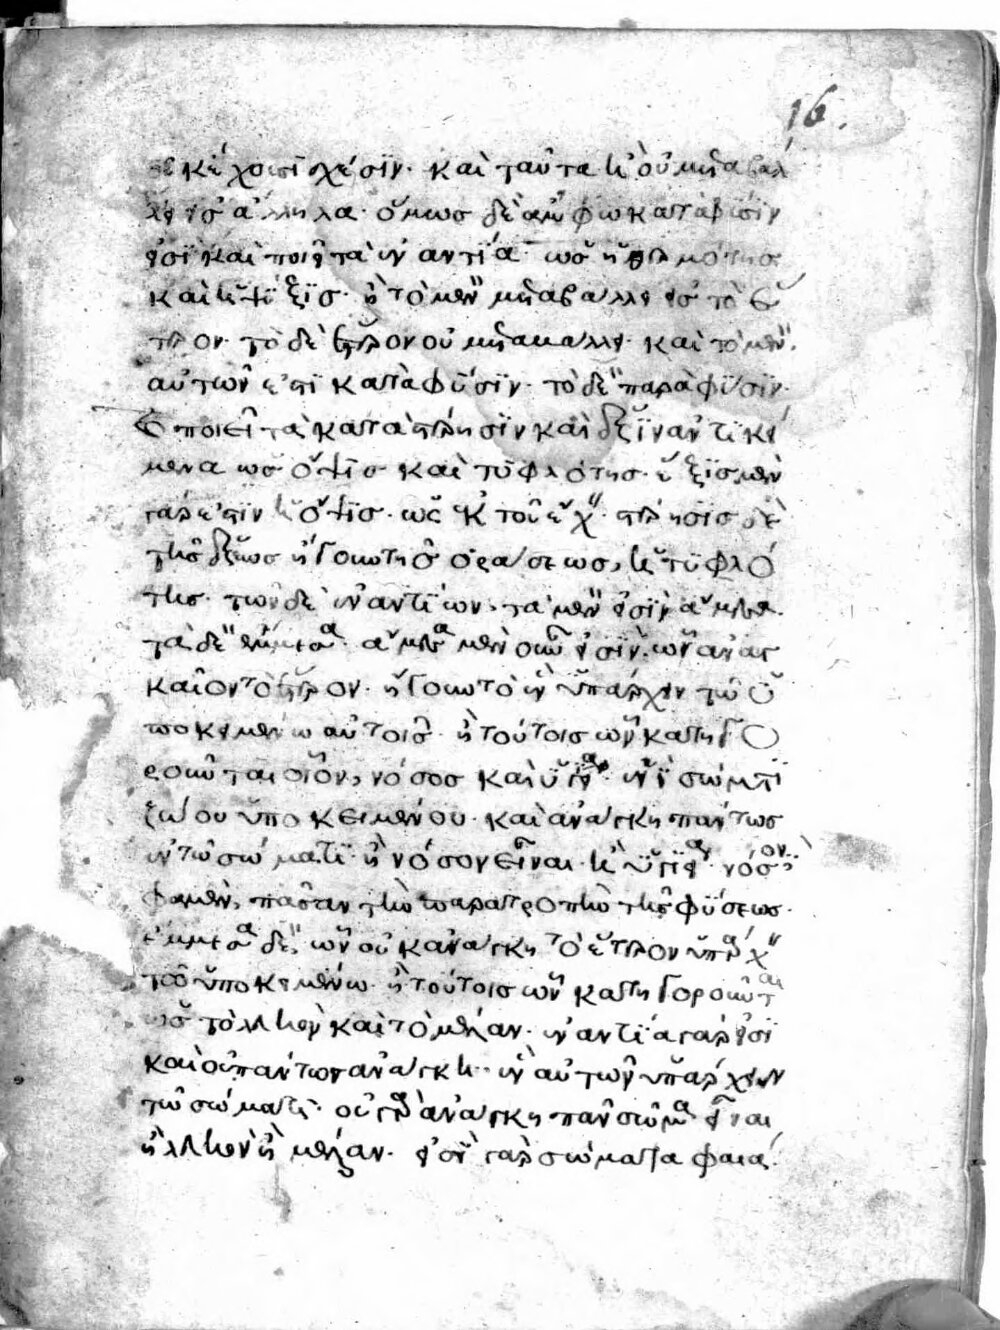 16.
κέχρισι σχέσιν· καὶ ταῦτα καὶ οὐ μεταβάλ
λει εἰς ἄλληλα· ὅμως δὲ ἄμφω κατὰ φύσιν
εἰσὶ καὶ ποιεῖ τὰ ἐναντία· ὡς ἡ θερμότης
καὶ ἡ ψύξις· ἢ τὸ μὲν μεταβάλλει εἰς τὸ ἕ
τερον· τὸ δὲ ἕτερον οὐ μεταβάλλει· καὶ τὸ μὲν
αὐτῶν ἐστι κατὰ φύσιν· τὸ δὲ παρὰ φύσιν·
καὶ ποιεῖ τὰ κατὰ στέρησιν καὶ ἕξιν ἀντικεί
μενα ὡς ὄψις καὶ τυφλότης· ἕξις μὲν
γάρ ἐστιν ἡ ὄψις· ὡς ἐκ τοῦ ἔχειν· στέρησις δὲ
τῆς ἕξεως ἤγουν τῆς ὁράσεως, ἡ τυφλό
της· τῶν δὲ ἐναντίων, τὰ μέν εἰσιν ἄμεσα·
τὰ δὲ ἔμμεσα· ἄμεσα μὲν οὖν εἰσιν, ὧν ἀναγ
καῖον τὸ ἕτερον· ἤγουν τὸ ἓν ὑπάρχειν τῷ ὑ
ποκειμένῳ αὐτοῖς· ἢ τούτοις ὧν κατηγο
ροῦνται οἷον, νόσος καὶ ὑγεία· ἐν τῷ σώματι
ζῴου ὑποκειμένου· καὶ ἀνάγκη πάντως
ἐν τῷ σώματι ἢ νόσον εἶναι ἢ ὑγίειαν· νόσον
φαμέν, πᾶσαν τὴν παρατροπὴν τῆς φύσεως·
ἔμμεσα δέ, ὧν οὐκ ἀνάγκη τὸ ἕτερον ὑπάρχειν
τῷ ὑποκειμένῳ· ἢ τούτοις ὧν κατηγοροῦνται
ὡς τὸ λευκὸν καὶ τὸ μέλαν· ἐναντία γάρ εἰσι
καὶ οὐ πάντως ἀνάγκη· ἓν αὐτῶν ὑπάρχειν
τῷ σώματι· οὐ γὰρ ἀνάγκη πᾶν σῶμα εἶναι
ἢ λευκὸν ἢ μέλαν· εἰσὶ γὰρ σώματα φαιά·